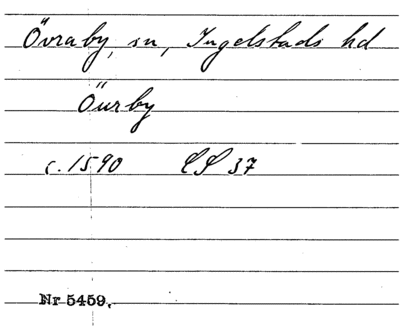 Övraby, sn, Ingelstads hd
Öurby
c. 1590 LS 37
Nr 5459.